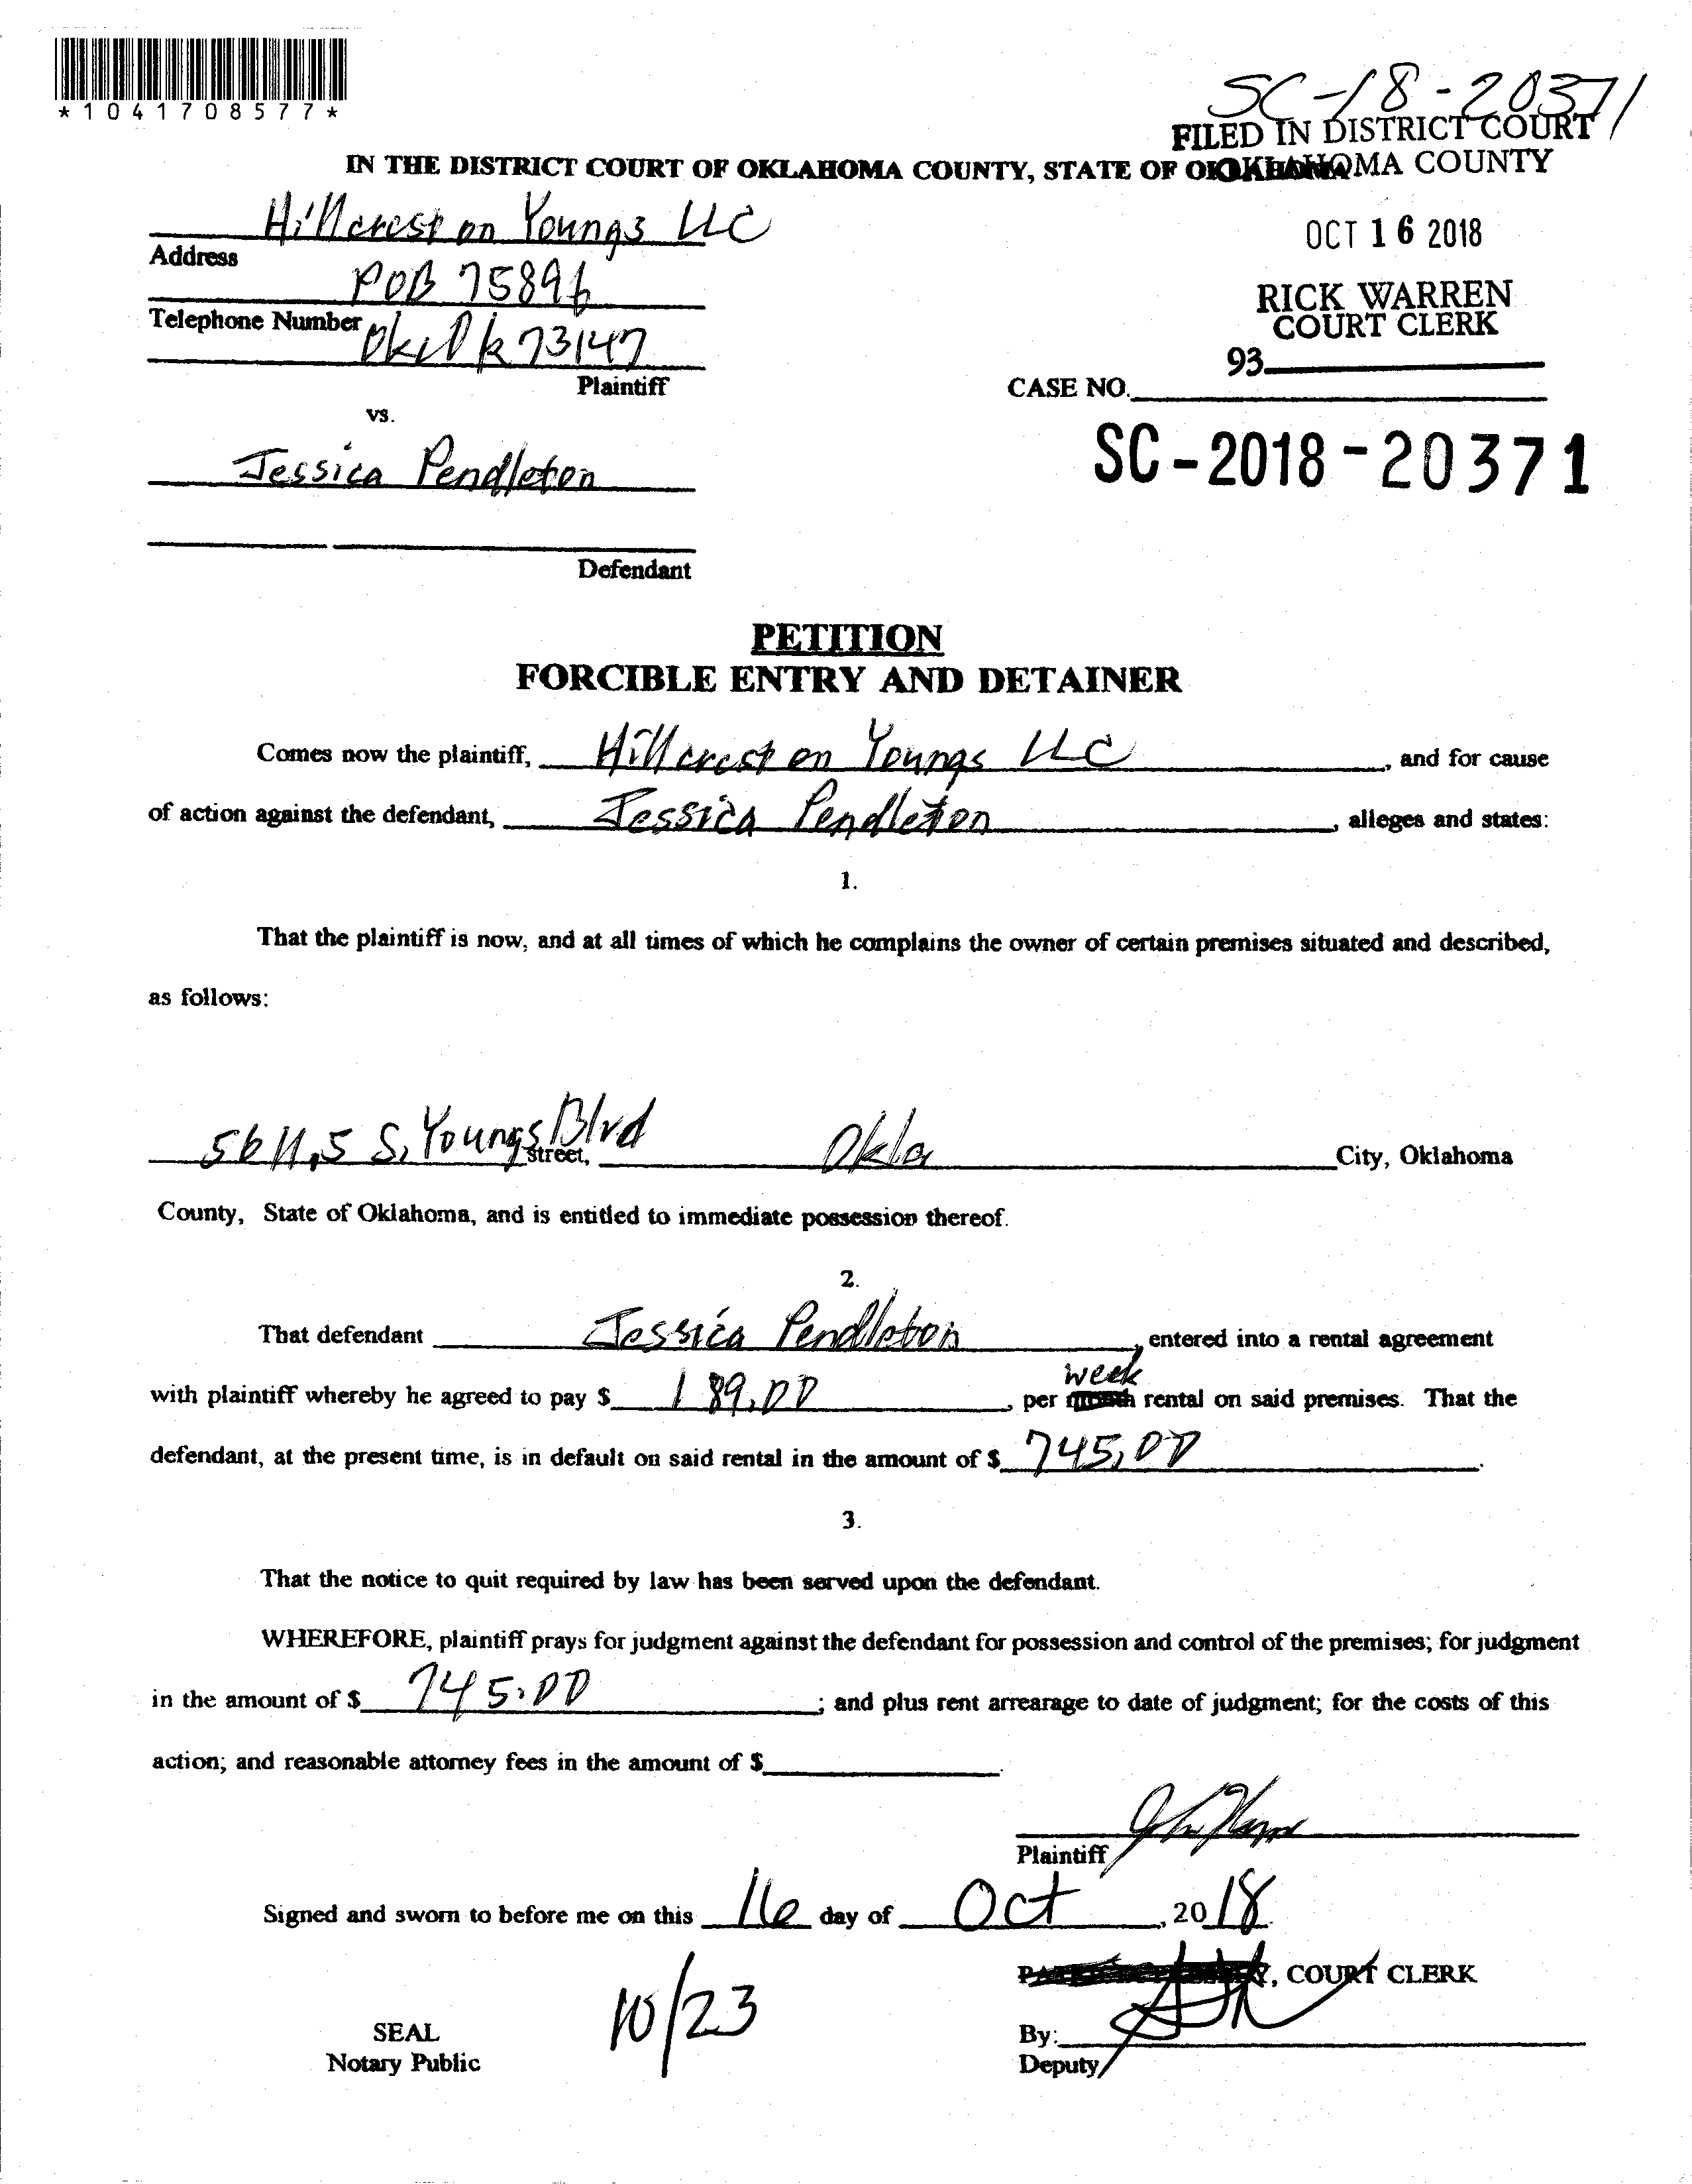 *1041708577*
SC-18-20371
FILED IN DISTRICT COURT
OKLAHOMA COUNTY
IN THE DISTRICT COURT OF OKLAHOMA COUNTY, STATE OF
Hillcrest on Youngs LLC
OCT 16 2018
Address
POB 75896
RICK WARREN
COURT CLERK
Telephone Number
Okc Ok 73147
93
Plaintiff
CASE NO.
vs.
SC-2018-20371
Jessica Pendleton
Defendant
PETITION
FORCIBLE ENTRY AND DETAINER
Comes now the plaintiff, Hillcrest on Youngs LLC, and for cause
of action against the defendant, Jessica Pendleton, alleges and states:
1.
That the plaintiff is now, and at all times of which he complains the owner of certain premises situated and described,
as follows:
S. Youngs Blvd Street, Okla City, Oklahoma
County, State of Oklahoma, and is entitled to immediate possession thereof.
2.
That defendant Jessica Pendleton, entered into a rental agreement
with plaintiff whereby he agreed to pay $ 189.00, per week rental on said premises. That the
defendant, at the present time, is in default on said rental in the amount of $ 745.00.
3.
That the notice to quit required by law has been served upon the defendant.
WHEREFORE, plaintiff prays for judgment against the defendant for possession and control of the premises; for judgment
in the amount of $ 745.00; and plus rent arrearage to date of judgment; for the costs of this
action; and reasonable attorney fees in the amount of $.
Plaintiff
Signed and sworn to before me on this 16 day of Oct, 2018.
, COURT CLERK
10/23
SEAL
By:
Notary Public
Deputy